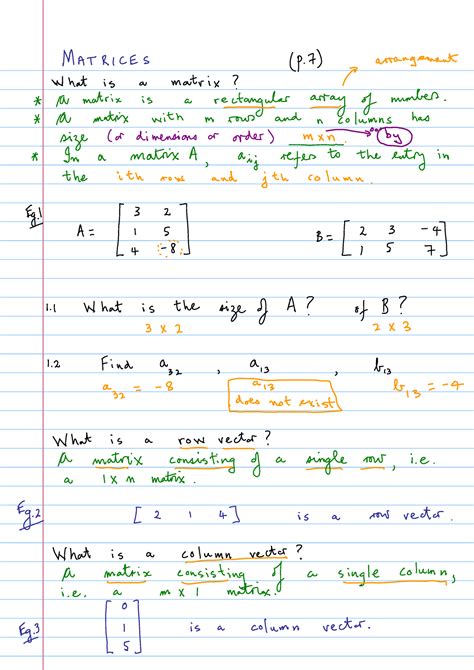 MATRICES (p.7) arrangement
What is a matrix?
* A matrix is a rectangular array of numbers.
* A matrix with m rows and n columns has
size (or dimensions or order) m×n by
* In a matrix A, aᵢⱼ refers to the entry in
the ith row and jth column.
Eg.1
A = [ 3 2
1 5
4 -8 ]
B = [ 2 3 -4
1 5 7 ]
1.1 What is the size of A? of B?
3 × 2 2 × 3
1.2 Find a₃₂ , a₁₃ , b₁₃
a₃₂ = -8 a₁₃ b₁₃ = -4
does not exist
What is a row vector?
A matrix consisting of a single row, i.e.
a 1×n matrix.
Eg.2 [ 2 1 4 ] is a row vector.
What is a column vector?
A matrix consisting of a single column,
i.e. a m×1 matrix.
Eg.3 [ 0
1
5 ] is a column vector.